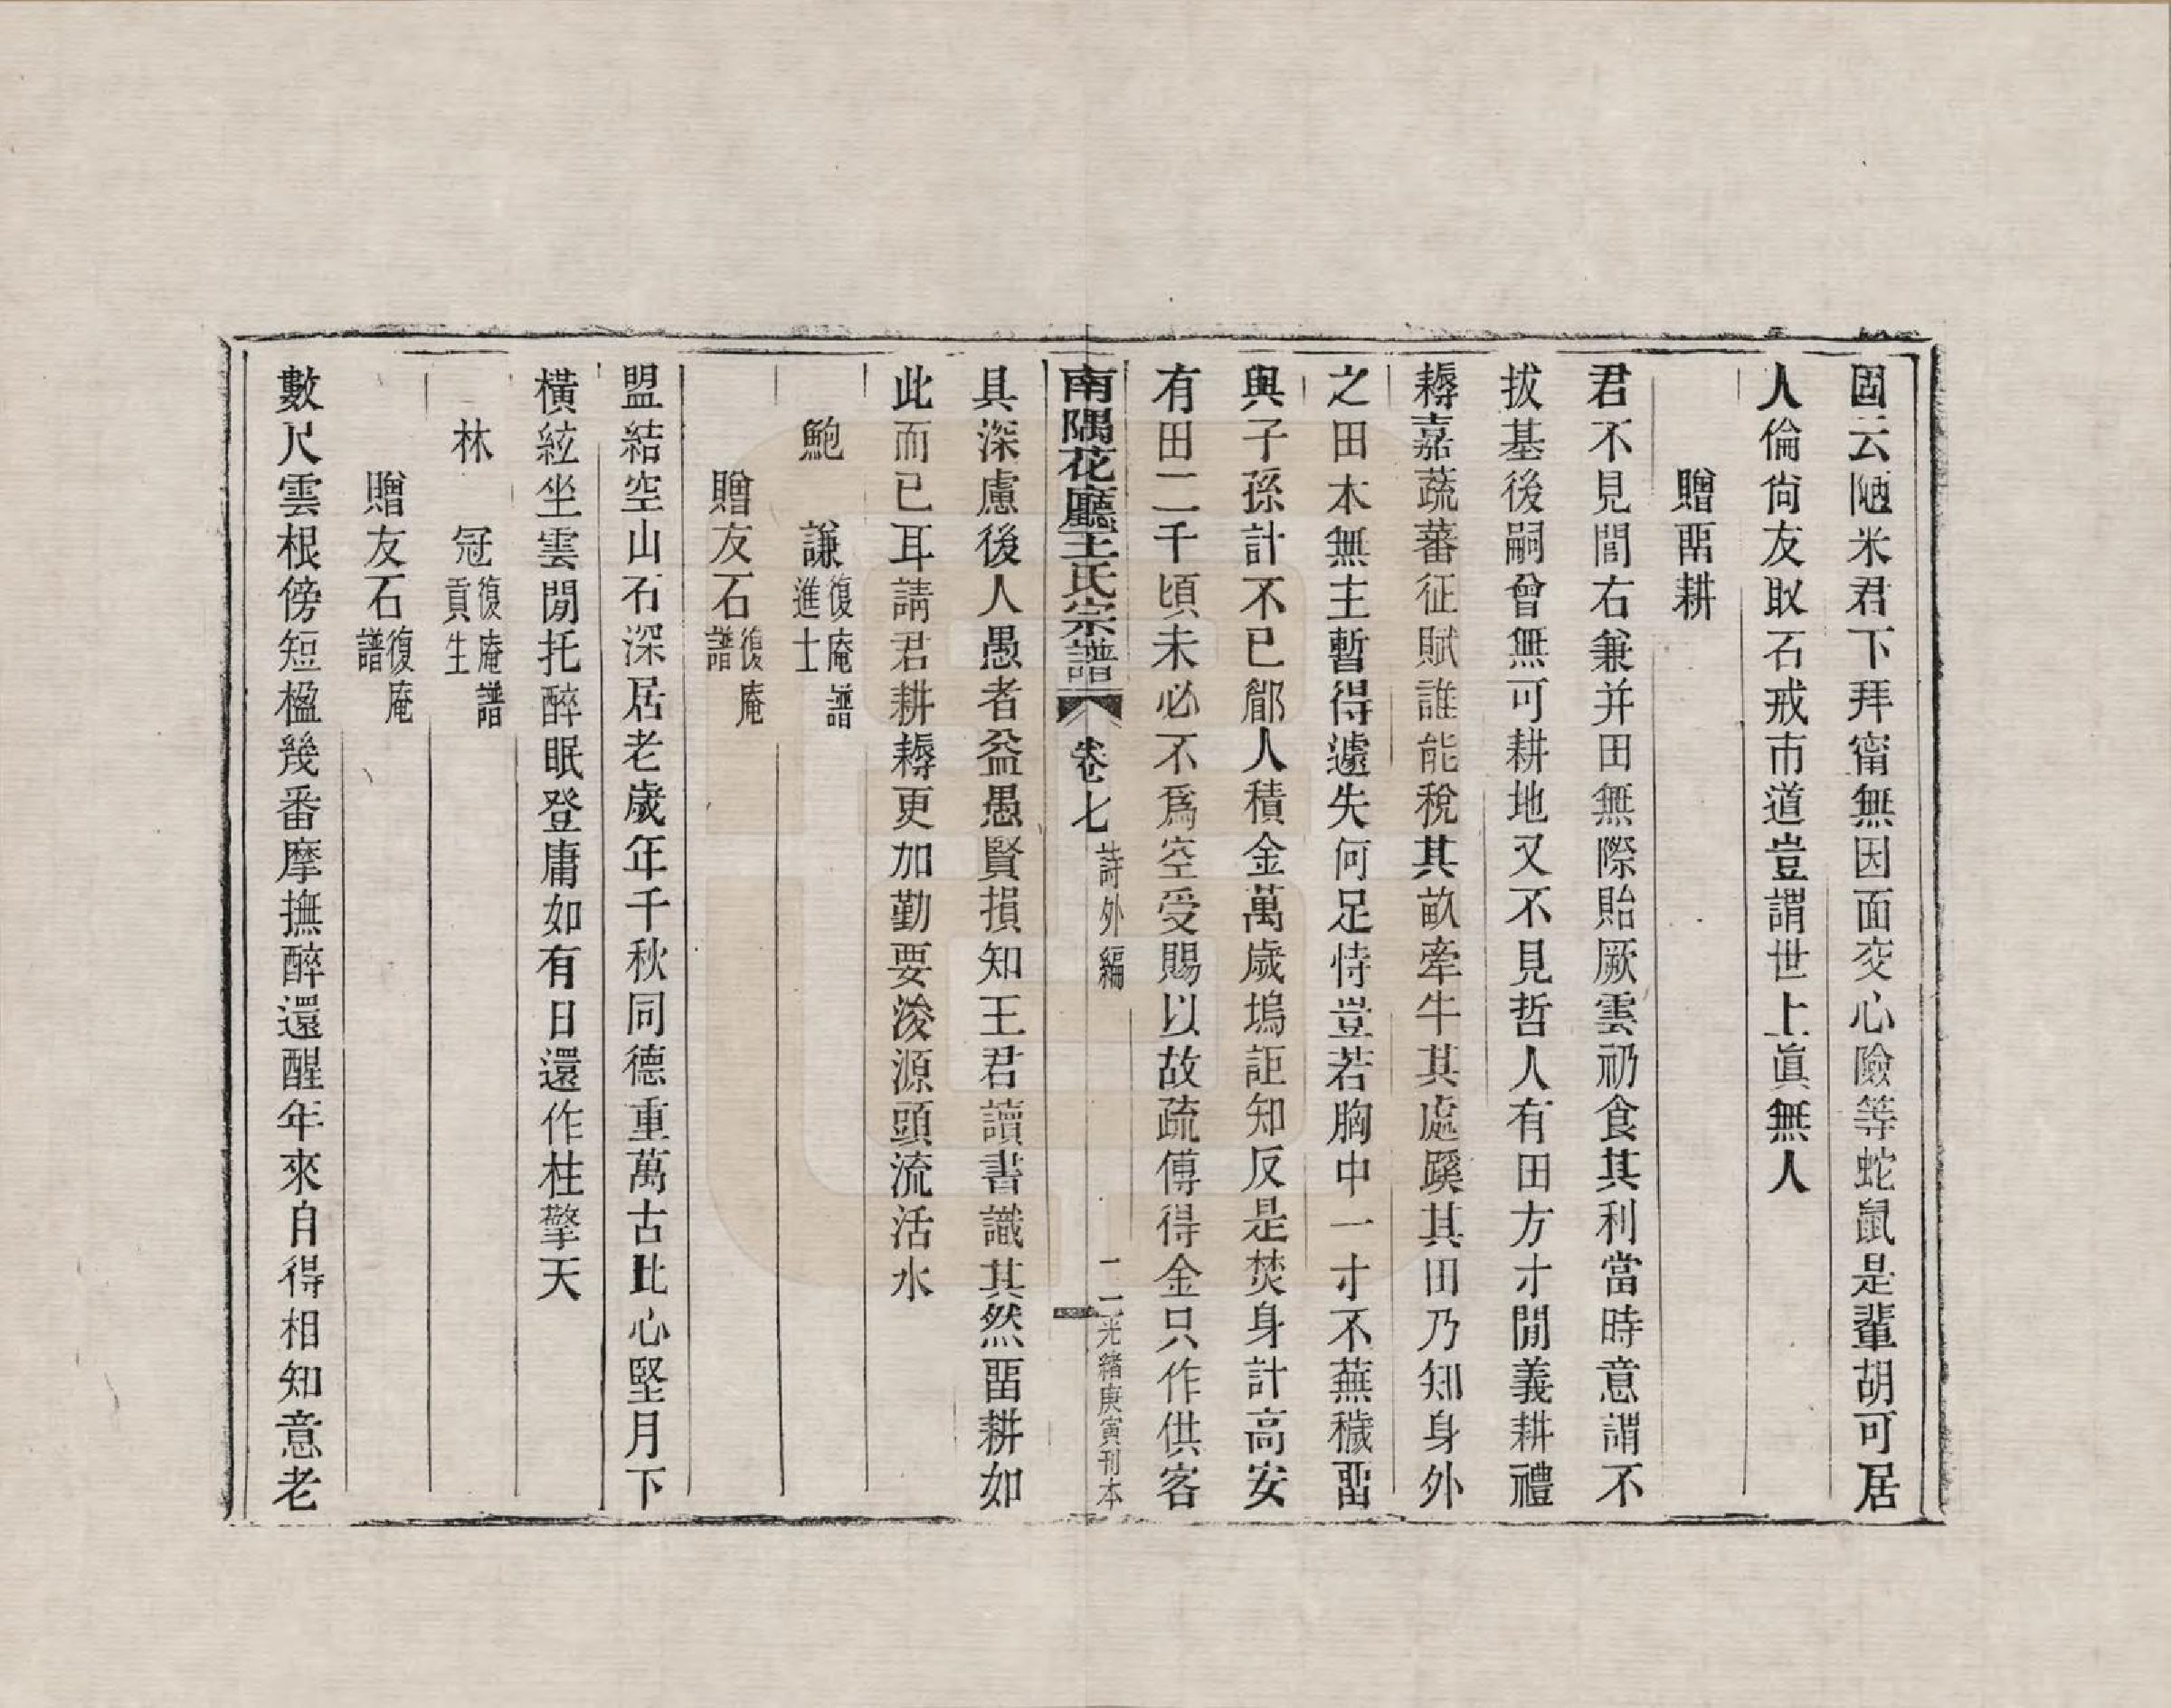 固云陋米君下拜甯無因面交心險等蛇鼠是輩胡可居
人倫尙友取石戒市道豈謂世上眞無人
贈畱耕
君不見閭右兼并田無際貽厥雲礽食其利當時意謂不
拔基後嗣曾無可耕地又不見哲人有田方寸閒義耕禮
耨嘉蔬蕃征賦誰能稅其畝牽牛其處蹊其田乃知身外
之田本無主暫得遽失何足恃豈若胸中一寸不蕪穢畱
與子孫計不已郿人積金萬歲塢詎知反是焚身計高安
有田二千頃未必不爲空受賜以故疏傅得金只作供客
南隅花廳王氏宗譜
卷七
詩外編
二二
光緒庚寅刊本
具深慮後人愚者益愚賢損知王君讀書識其然畱耕如
此而已耳請君耕耨更加勤要浚源頭流活水
鮑謙復庵譜進士
贈友石復庵譜
盟結空山石深居老歲年千秋同德重萬古此心堅月下
橫絃坐雲閒托醉眠登庸如有日還作柱擎天
林冠復庵譜貢生
贈友石復庵譜
數尺雲根傍短楹幾番摩撫醉還醒年來自得相知意老